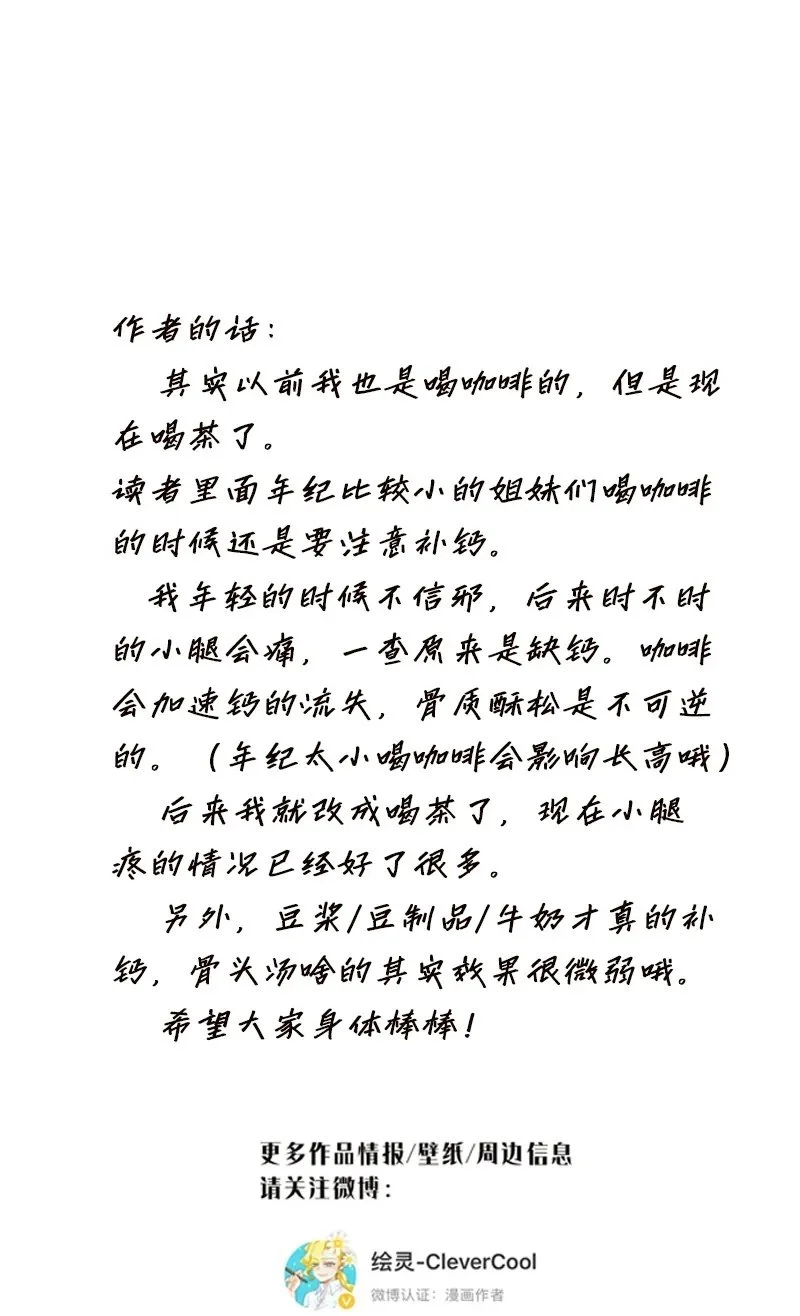 作者的话：
其实以前我也是喝咖啡的，但是现
在喝茶了。
读者里面年纪比较小的姐妹们喝咖啡
的时候还是要注意补钙。
我年轻的时候不信邪，后来时不时
的小腿会痛，一查原来是缺钙。咖啡
会加速钙的流失，骨质酥松是不可逆
的。（年纪太小喝咖啡会影响长高哦）
后来我就改成喝茶了，现在小腿
疼的情况已经好了很多。
另外，豆浆/豆制品/牛奶才真的补
钙，骨头汤啥的其实效果很微弱哦。
希望大家身体棒棒！
更多作品情报/壁纸/周边信息
请关注微博：
绘灵-CleverCool
微博认证：漫画作者